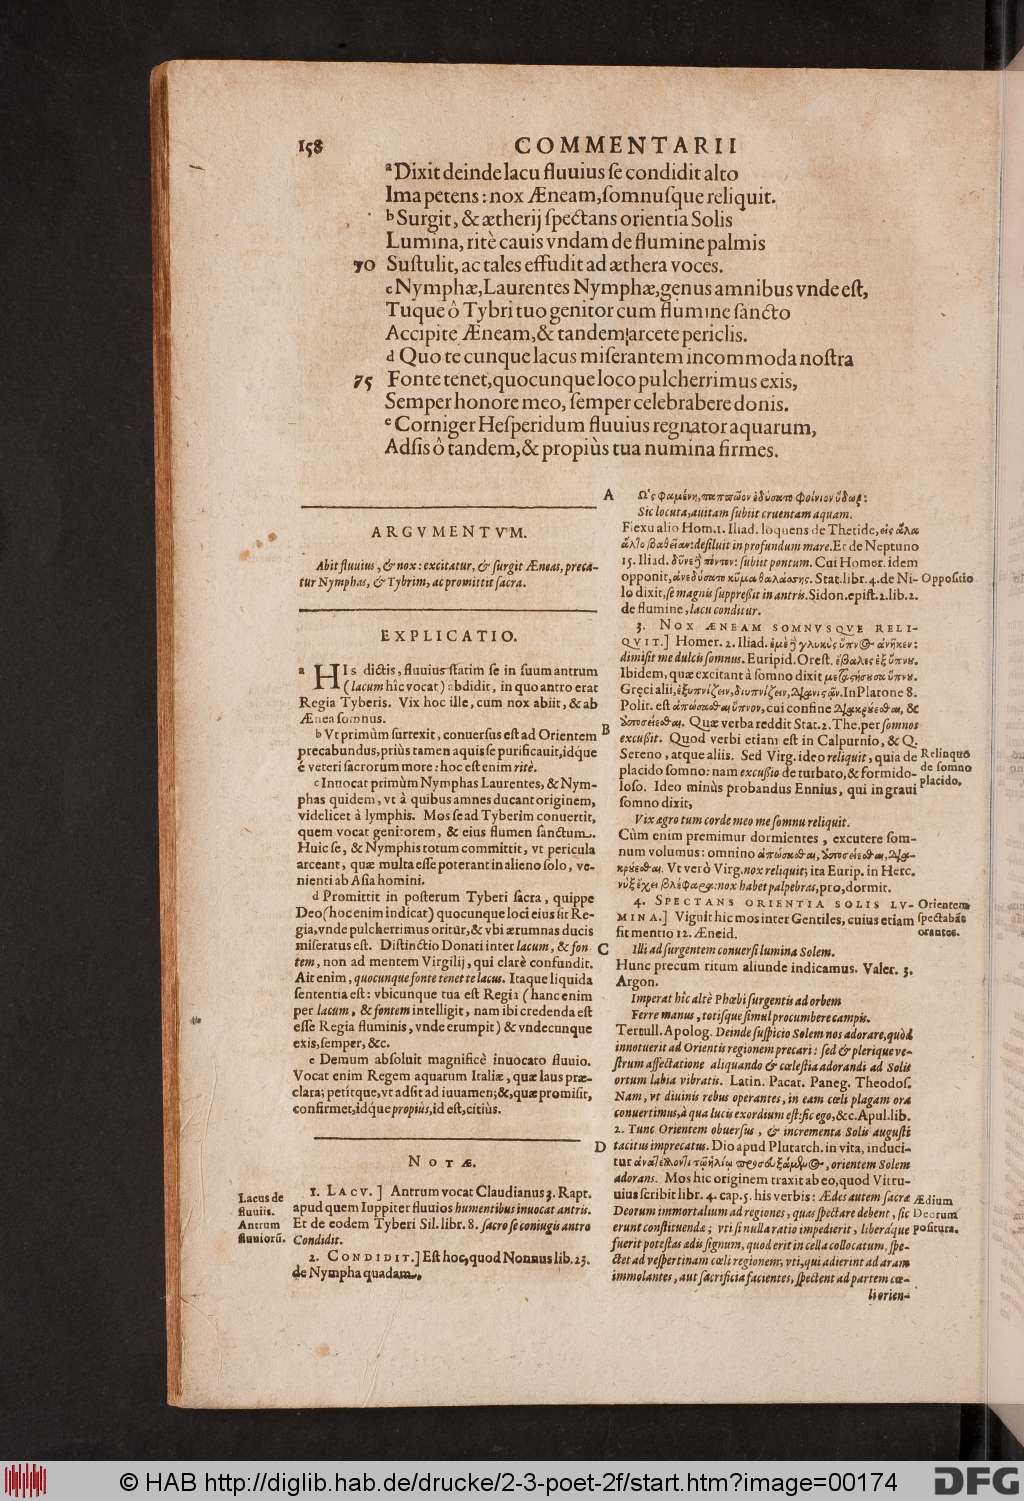 158 COMMENTARII
ᵃ Dixit deinde lacu fluuius ſe condidit alto
Ima petens : nox Æneam, ſomnuſque reliquit.
ᵇ Surgit, & ætherij ſpectans orientia Solis
Lumina, ritè cauis vndam de flumine palmis
70 Suſtulit, ac tales effudit ad æthera voces.
c Nymphæ, Laurentes Nymphæ, genus amnibus vnde eſt,
Tuque ô Tybri tuo genitor cum flumine ſancto
Accipite Æneam, & tandem arcete periclis.
d Quo te cunque lacus miſerantem incommoda noſtra
75 Fonte tenet, quocunque loco pulcherrimus exis,
Semper honore meo, ſemper celebrabere donis.
ᵉ Corniger Heſperidum fluuius regnator aquarum,
Adſis ô tandem, & propiùs tua numina firmes.
ARGVMENTVM.
Abit fluuius, & nox : excitatur, & ſurgit Æneas, preca-
tur Nymphas, & Tybrim, ac promittit ſacra.
EXPLICATIO.
a HIs dictis, fluuius ſtatim ſe in ſuum antrum
(lacum hîc vocat) abdidit, in quo antro erat
Regia Tyberis. Vix hoc ille, cum nox abiit, & ab
Ænea ſomnus.
b Vt primùm ſurrexit, conuerſus eſt ad Orientem
precabundus, priùs tamen aquis ſe purificauit, idque
é veteri ſacrorum more : hoc eſt enim ritè.
c Innocat primùm Nymphas Laurentes, & Nym-
phas quidem, vt à quibus amnes ducant originem,
videlicet à lymphis. Mos ſe ad Tyberim conuertit,
quem vocat genitorem, & eius flumen ſanctum.
Huic ſe, & Nymphis totum committit, vt pericula
arceant, quæ multa eſſe poterant in alieno ſolo, ve-
nienti ab Aſia homini.
d Promittit in poſterum Tyberi ſacra, quippe
Deo (hoc enim indicat) quocunque loci eius ſit Re-
gia, vnde pulcherrimus oritur, & vbi ærumnas ducis
miſeratus eſt. Diſtinctio Donati inter lacum, & fon-
tem, non ad mentem Virgilij, qui clarè confundit.
Ait enim, quocunque fonte tenet te lacus. Itaque liquida
ſententia eſt : vbicunque tua eſt Regia (hanc enim
per lacum, & fontem intelligit, nam ibi credenda eſt
eſſe Regia fluminis, vnde erumpit) & vndecunque
exis, ſemper, &c.
e Demum abſoluit magnificè inuocato fluuio.
Vocat enim Regem aquarum Italiæ, quæ laus præ-
clara; petitque, vt adſit ad iuuamen; &, quæ promiſit,
confirmet, idque propiùs, id eſt, citiùs.
NOTÆ.
Lacus de
fluuiis.
Antrum
fluuiorũ.
1. LACV.] Antrum vocat Claudianus 3. Rapt.
apud quem Iuppiter fluuios humentibus inuocat antris.
Et de eodem Tyberi Sil. libr. 8. ſacro ſe coniugis antro
Condidit.
2. CONDIDIT.] Eſt hoc, quod Nonnus lib. 23.
de Nympha quadam,
A Ὣς φαμένη, παπῶον ἐδύσατο φοίνιον ὕδωρ:
Sic locuta, auitam ſubiit cruentam aquam.
Flexu alio Hom. 1. Iliad. loquens de Thetide, εἰς ἅλα
ἆλτο βαθεῖαν: deſiluit in profundum mare. Et de Neptuno
15. Iliad. δῦνε ἢ πόντον: ſubiit pontum. Cui Homer. idem
opponit, ἀνεδύσατο κῦμα θαλάσσης. Stat. libr. 4. de Ni- Oppoſitio
lo dixit, ſe magnis ſuppreßit in antris. Sidon. epiſt. 2. lib. 2.
de flumine, lacu conditur.
3. NOX ÆNEAM SOMNVSQVE RELI-
QVIT.] Homer. 2. Iliad. ἐμὲ ἢ γλυκὺς ὕπνος ἀνῆκεν:
dimiſit me dulcis ſomnus. Euripid. Oreſt. ἔβαλες ἐξ ὕπνου.
Ibidem, quæ excitant à ſomno dixit
Gręci alii, ἐξυπνίζειν, διυπνίζειν, In Platone 8.
Polit. eſt ἀπώσασθαι ὕπνον, cui confine &
B ὑποσείεσθαι. Quæ verba reddit Stat. 2. The. per ſomnos
excußit. Quod verbi etiam eſt in Calpurnio, & Q.
Sereno, atque aliis. Sed Virg. ideo reliquit, quia de
placido ſomno: nam excuſſio de turbato, & formido-
loſo. Ideo minùs probandus Ennius, qui in graui
ſomno dixit,
Relinquo
de ſomno
placido.
Vix ægro tum corde meo me ſomnu reliquit.
Cùm enim premimur dormientes, excutere ſom-
num volumus: omnino ἀπώσασθαι, ὑποσείεσθαι,
Vt verò Virg. nox reliquit; ita Eurip. in Herc.
νὺξ ἔχει βλέφαρα: nox habet palpebras, pro, dormit.
4. SPECTANS ORIENTIA SOLIS LV-
MINA.] Viguit hic mos inter Gentiles, cuius etiam
fit mentio 12. Æneid.
Orientem
ſpectabãt
orantes.
C Illi ad ſurgentem conuerſi lumina Solem.
Hunc precum ritum aliunde indicamus. Valer. 3.
Argon.
Imperat hîc altè Phœbi ſurgentis ad orbem
Ferre manus, totiſque ſimul procumbere campis.
Tertull. Apolog. Deinde ſuſpicio Solem nos adorare, quòd
innotuerit ad Orientis regionem precari : ſed & plerique ve-
ſtrum affectatione aliquando & cœleſtia adorandi ad Solis
ortum labia vibratis. Latin. Pacat. Paneg. Theodoſ.
Nam, vt diuinis rebus operantes, in eam cœli plagam ora
conuertimus, à qua lucis exordium eſt: ſic ego, &c. Apul. lib.
2. Tunc Orientem obuerſus, & incrementa Solis auguſti
D tacitus imprecatus. Dio apud Plutarch. in vita, induci-
tur ἀνατέλλοντι τῷ ἡλίῳ προσευξάμενος, orientem Solem
adorans. Mos hic originem traxit ab eo, quod Vitru-
uius ſcribit libr. 4. cap. 5. his verbis : Ædes autem ſacræ
Deorum immortalium ad regiones, quas ſpectare debent, ſic
erunt conſtituendæ; vti ſi nulla ratio impedierit, liberáque
fuerit poteſtas ædis ſignum, quod erit in cella collocatum, ſpe-
ctet ad veſpertinam cœli regionem; vti, qui adierint ad aram
immolantes, aut ſacrificia facientes, ſpectent ad partem cœ-
Ædium
Deorum
poſitura.
li orien-
© HAB http://diglib.hab.de/drucke/2-3-poet-2f/start.htm?image=00174
DFG